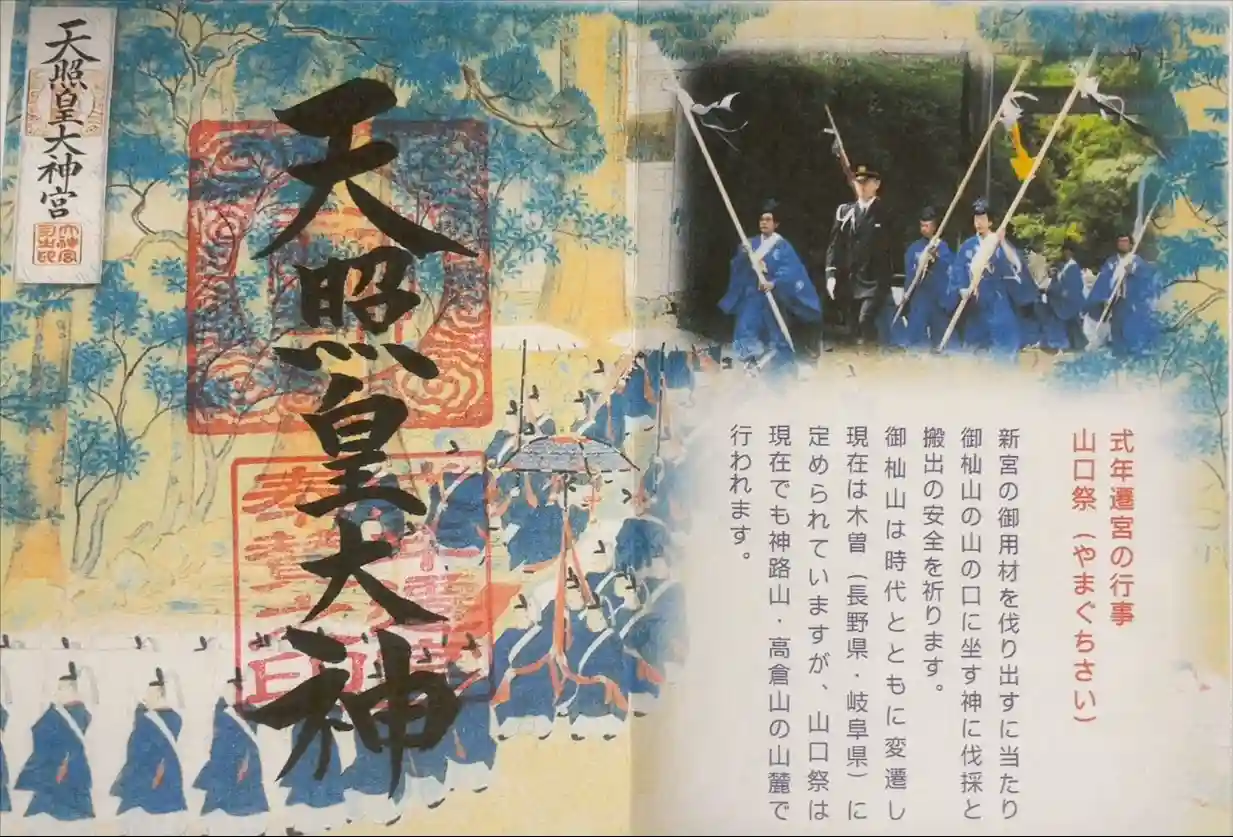 式年遷宮の行事
山口祭（やまぐちさい）
新宮の御用材を伐り出すに当たり
御杣山の山の口に坐す神に伐採と
搬出の安全を祈ります。
御杣山は時代とともに変遷し
現在は木曽（長野県・岐阜県）に
定められていますが、山口祭は
現在でも神路山・高倉山の山麓で
行われます。
天照皇大神
天照皇大神宮